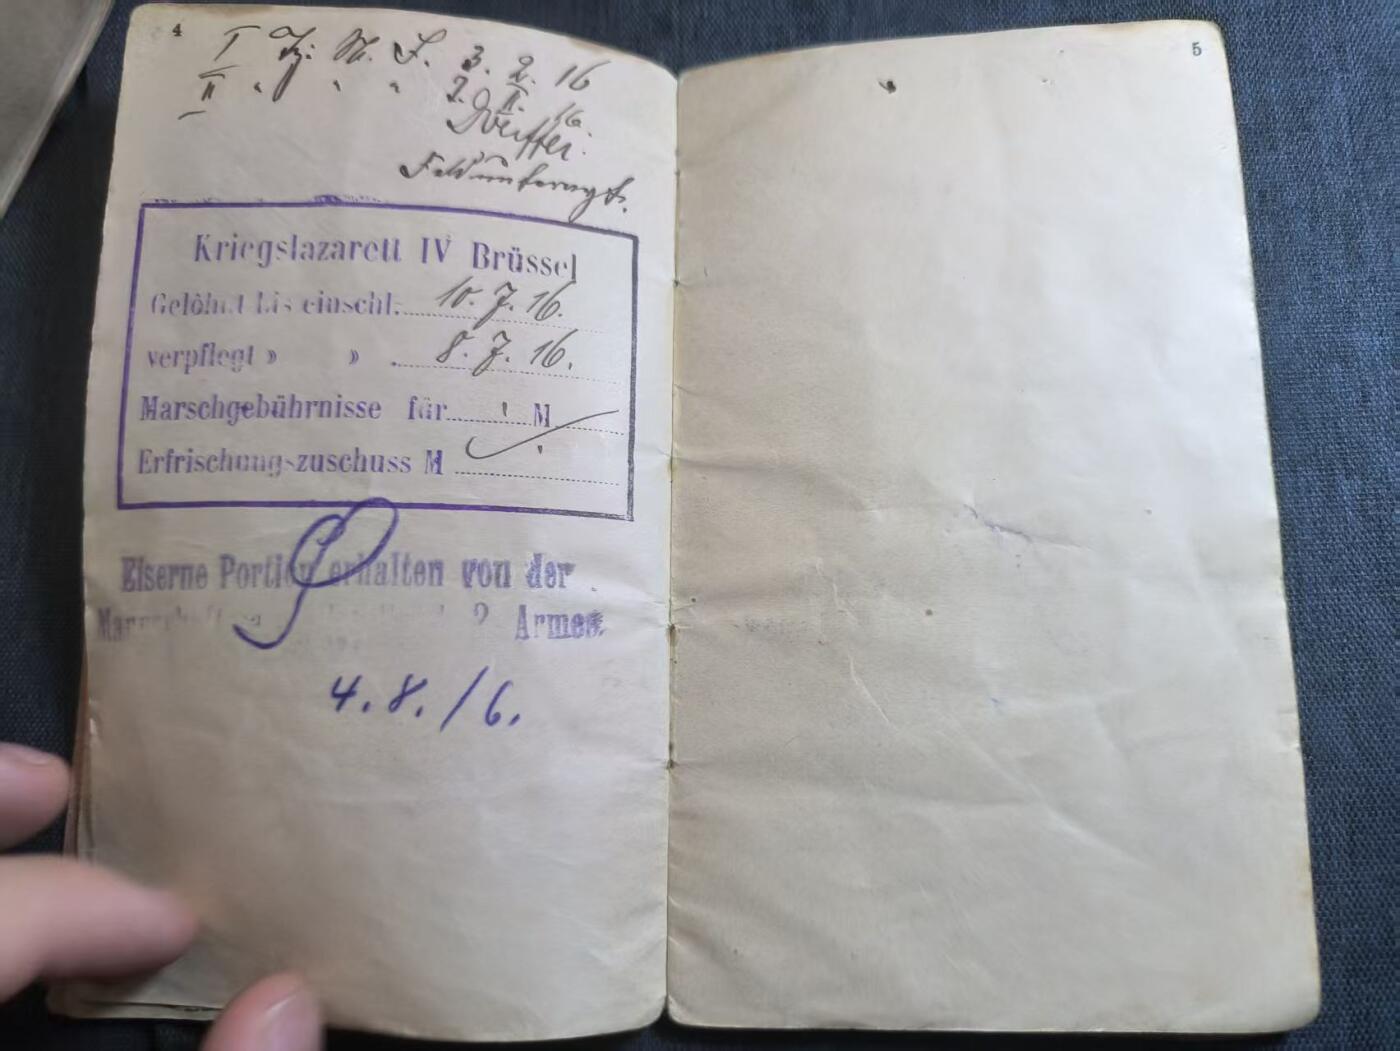 4
I Ty. M. F. 3. 2. 16
II " " " 2. II. 16.
Feldunterarzt.
Kriegslazarett IV Brüssel
Gelöhnt bis einschl. 10. 7. 16.
verpflegt » » 8. 7. 16.
Marschgebührnisse für M
Erfrischungszuschuss M
Eiserne Portion erhalten von der
2 Armee
4. 8. 16.
5